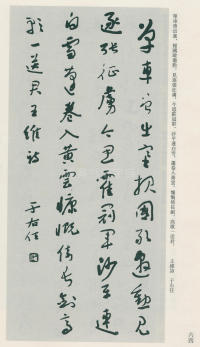 單車曾出塞，報國敢邀勳，見逐張征虜，今思霍冠軍，沙平連白雪，蓬卷入黃雲，慷慨倚長劍，高歌一送君。 王維詩 于右任
單車曾出塞報國敢邀勳見
逐張征虜今思霍冠軍沙平連
白雪蓬卷入黃雲慷慨倚長劍高
歌一送君王維詩 于右任
六四